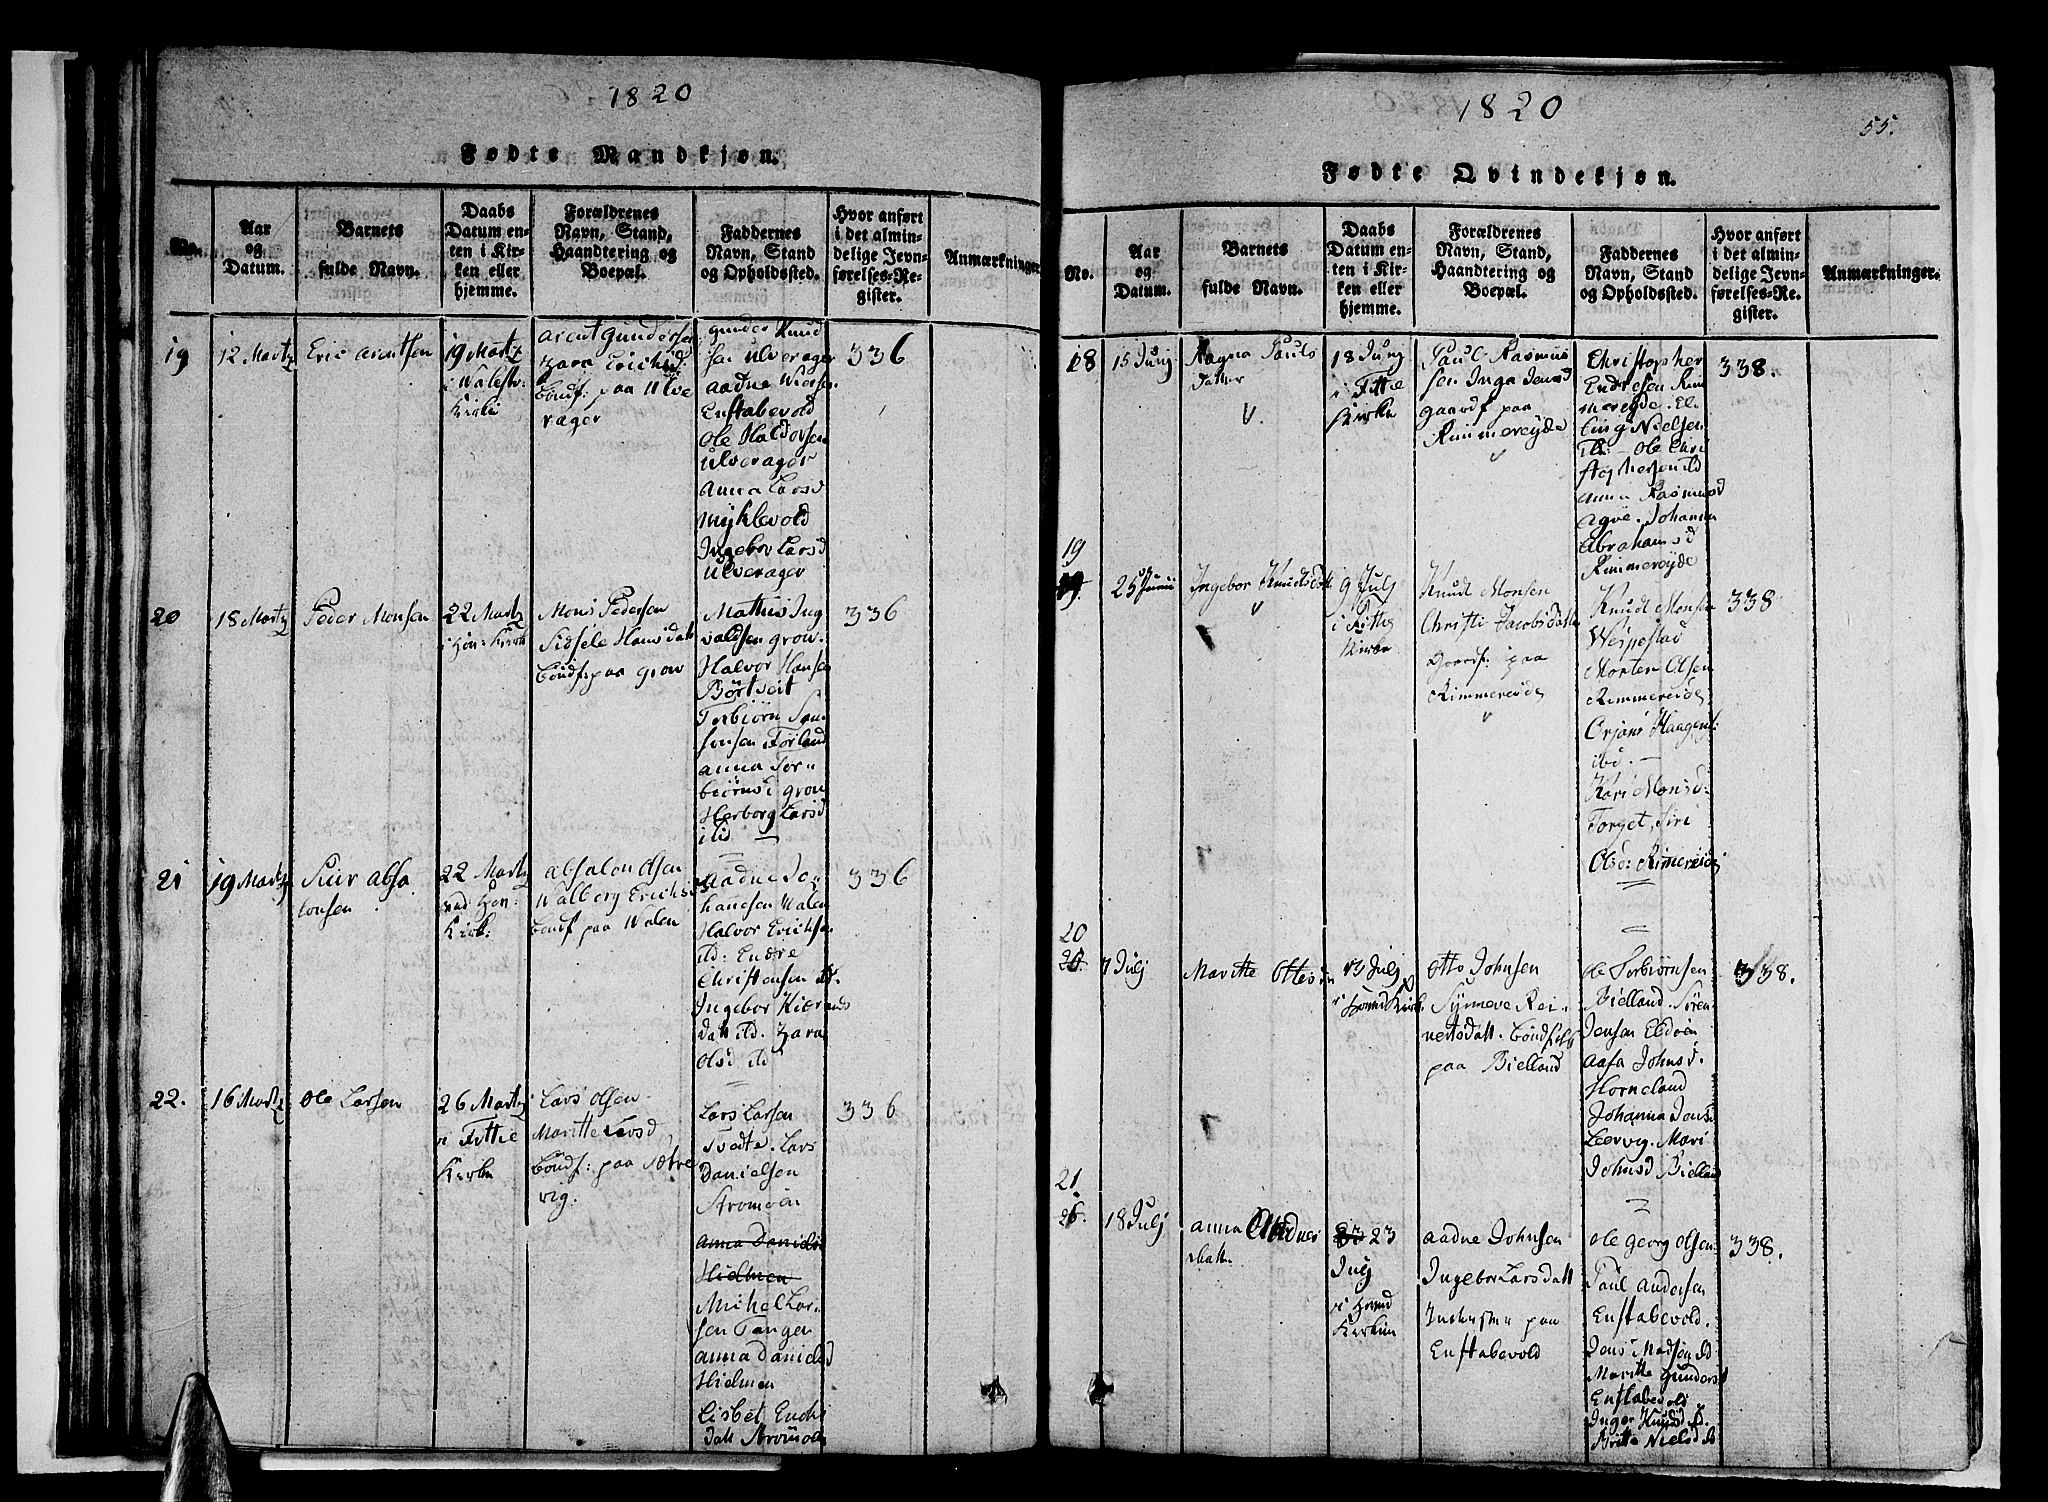 1820
Fødte Mandkjøn.
No.
Aar
og
Datum.
Barnets
fulde Navn.
Daabs
Datum en-
ten i Kir-
ken eller
hjemme.
Forældrenes
Navn, Stand,
Haandtering og
Boepæl.
Faddernes
Navn, Stand
og Opholdssted.
Hvor anført
i det almin-
delige Jevn-
førelses-Re-
gister.
Anmærkninger
19
12 Martz
Eric arentsen
19 Martz
i Walestr:
Kirke
arent Gunders
Zara Erichsd:
bondf: paa Ulve
rager
gunder Knud
sen ulverager
aadne
Enstabevold
Ole Haldorsen
ulverager
Anna Larsd
Myklevold
Ingebor Larsd
ulverager
336
20
18 Martz
Peder Monsen
22 Martz
i Hou: Kirke
Mons Pedersen
Sidsele Hansdatt
bondf: paa grow
Mathis Ing
valdsen grow.
Halvor Hansen
Börtveit
Torbiörn Sam
sonsen Förland
anna Tor-
biörnsd grow
Herborg Larsd
ibd
336
21
19 Martz
Siur absa
lonsen
22 Martz
ved Hou:
Kirk:
absalon Olsen
Walberg Erichsd
bondf paa Walen
aadne Jo-
hansen Walen
Halvor Erichsen
ibd: Endre
Christensen ibd.
Ingebor
datt ibd. Zara
Olsd ibd
336
22.
16 Martz
Ole Larsen
26 Martz
i Fittie
Kirke
Lars Olsen
Maritte Larsd
bondf: paa Sætre
vig.
Lars Larsen
Tvedte. Lars
Danielsen
Stromøen
anna Daniels
Hielmen
Michel Lar-
sen Tangen
anna Danielsd
Hielmen
Lisbet
datt Stromøen
336
1820
55.
Fødte Qvindekjøn.
No.
Aar
og
Datum.
Barnets
fulde Navn.
Daabs
Datum en-
ten i Kir-
ken eller
hjemme.
Forældrenes
Navn, Stand,
Haandtering og
Boepæl.
Faddernes
Navn, Stand
og Opholdssted.
Hvor anført
i det almin-
delige Jevn-
førelses-Re-
gister.
Anmærkninger.
18
15 Junj
Magna Pauls
datter
18 Junj
i Fittie
Kirke
Paul Rasmus
sen Inga Jensd
gaardf paa
Rimmereyde
Christopher
Endresen Rim
mereyde. El
ling Nielsen
ibd. - Ole Chri
stophersen ibd
anna Rasmusd
agve. Johanna
Abrahamsd
Rimmereyde
338.
19
19.
25 Junii
Ingebor Knudsdatt
9 Julj
i Fittie
Kirke
Knudt Monsen
Christi Jacobsdatter
gaardf: paa
Rimmereide
Knudt Monsen
Wespestad
Morten Olsen
Rimmereide
Orjans Haagens:
ibd. -
Kari Monsd:
Torget, Siri
Olsd: Rimereide
338
20
20.
7 Julj
Maritte Ottesd
13 Julj
i Hound Kirke
Otto Johnsen
Synneve Rei-
nertsdatt. bondfolk
paa Bielland
Ole Torbiørnsen
Bielland. Sören
Jensen Eldøen
aasa Johnsd.
Horneland
Johanna Jensd
Lervig. Mari
Johnsd Bielland
338.
21.
18 Julj
anna Aadnes
datt
23
Julj
i Hound
Kirken
aadne Johnsen
Ingebor Larsdatt
Inderster paa
Enstabevold
Ole Georg Olsen
Paul andersen
Enstabevold.
Jens Madsen ibd
Maritte Gundersd
Enstabevold
Inger Knudsd ib.
Britte Nielsd ib
338.